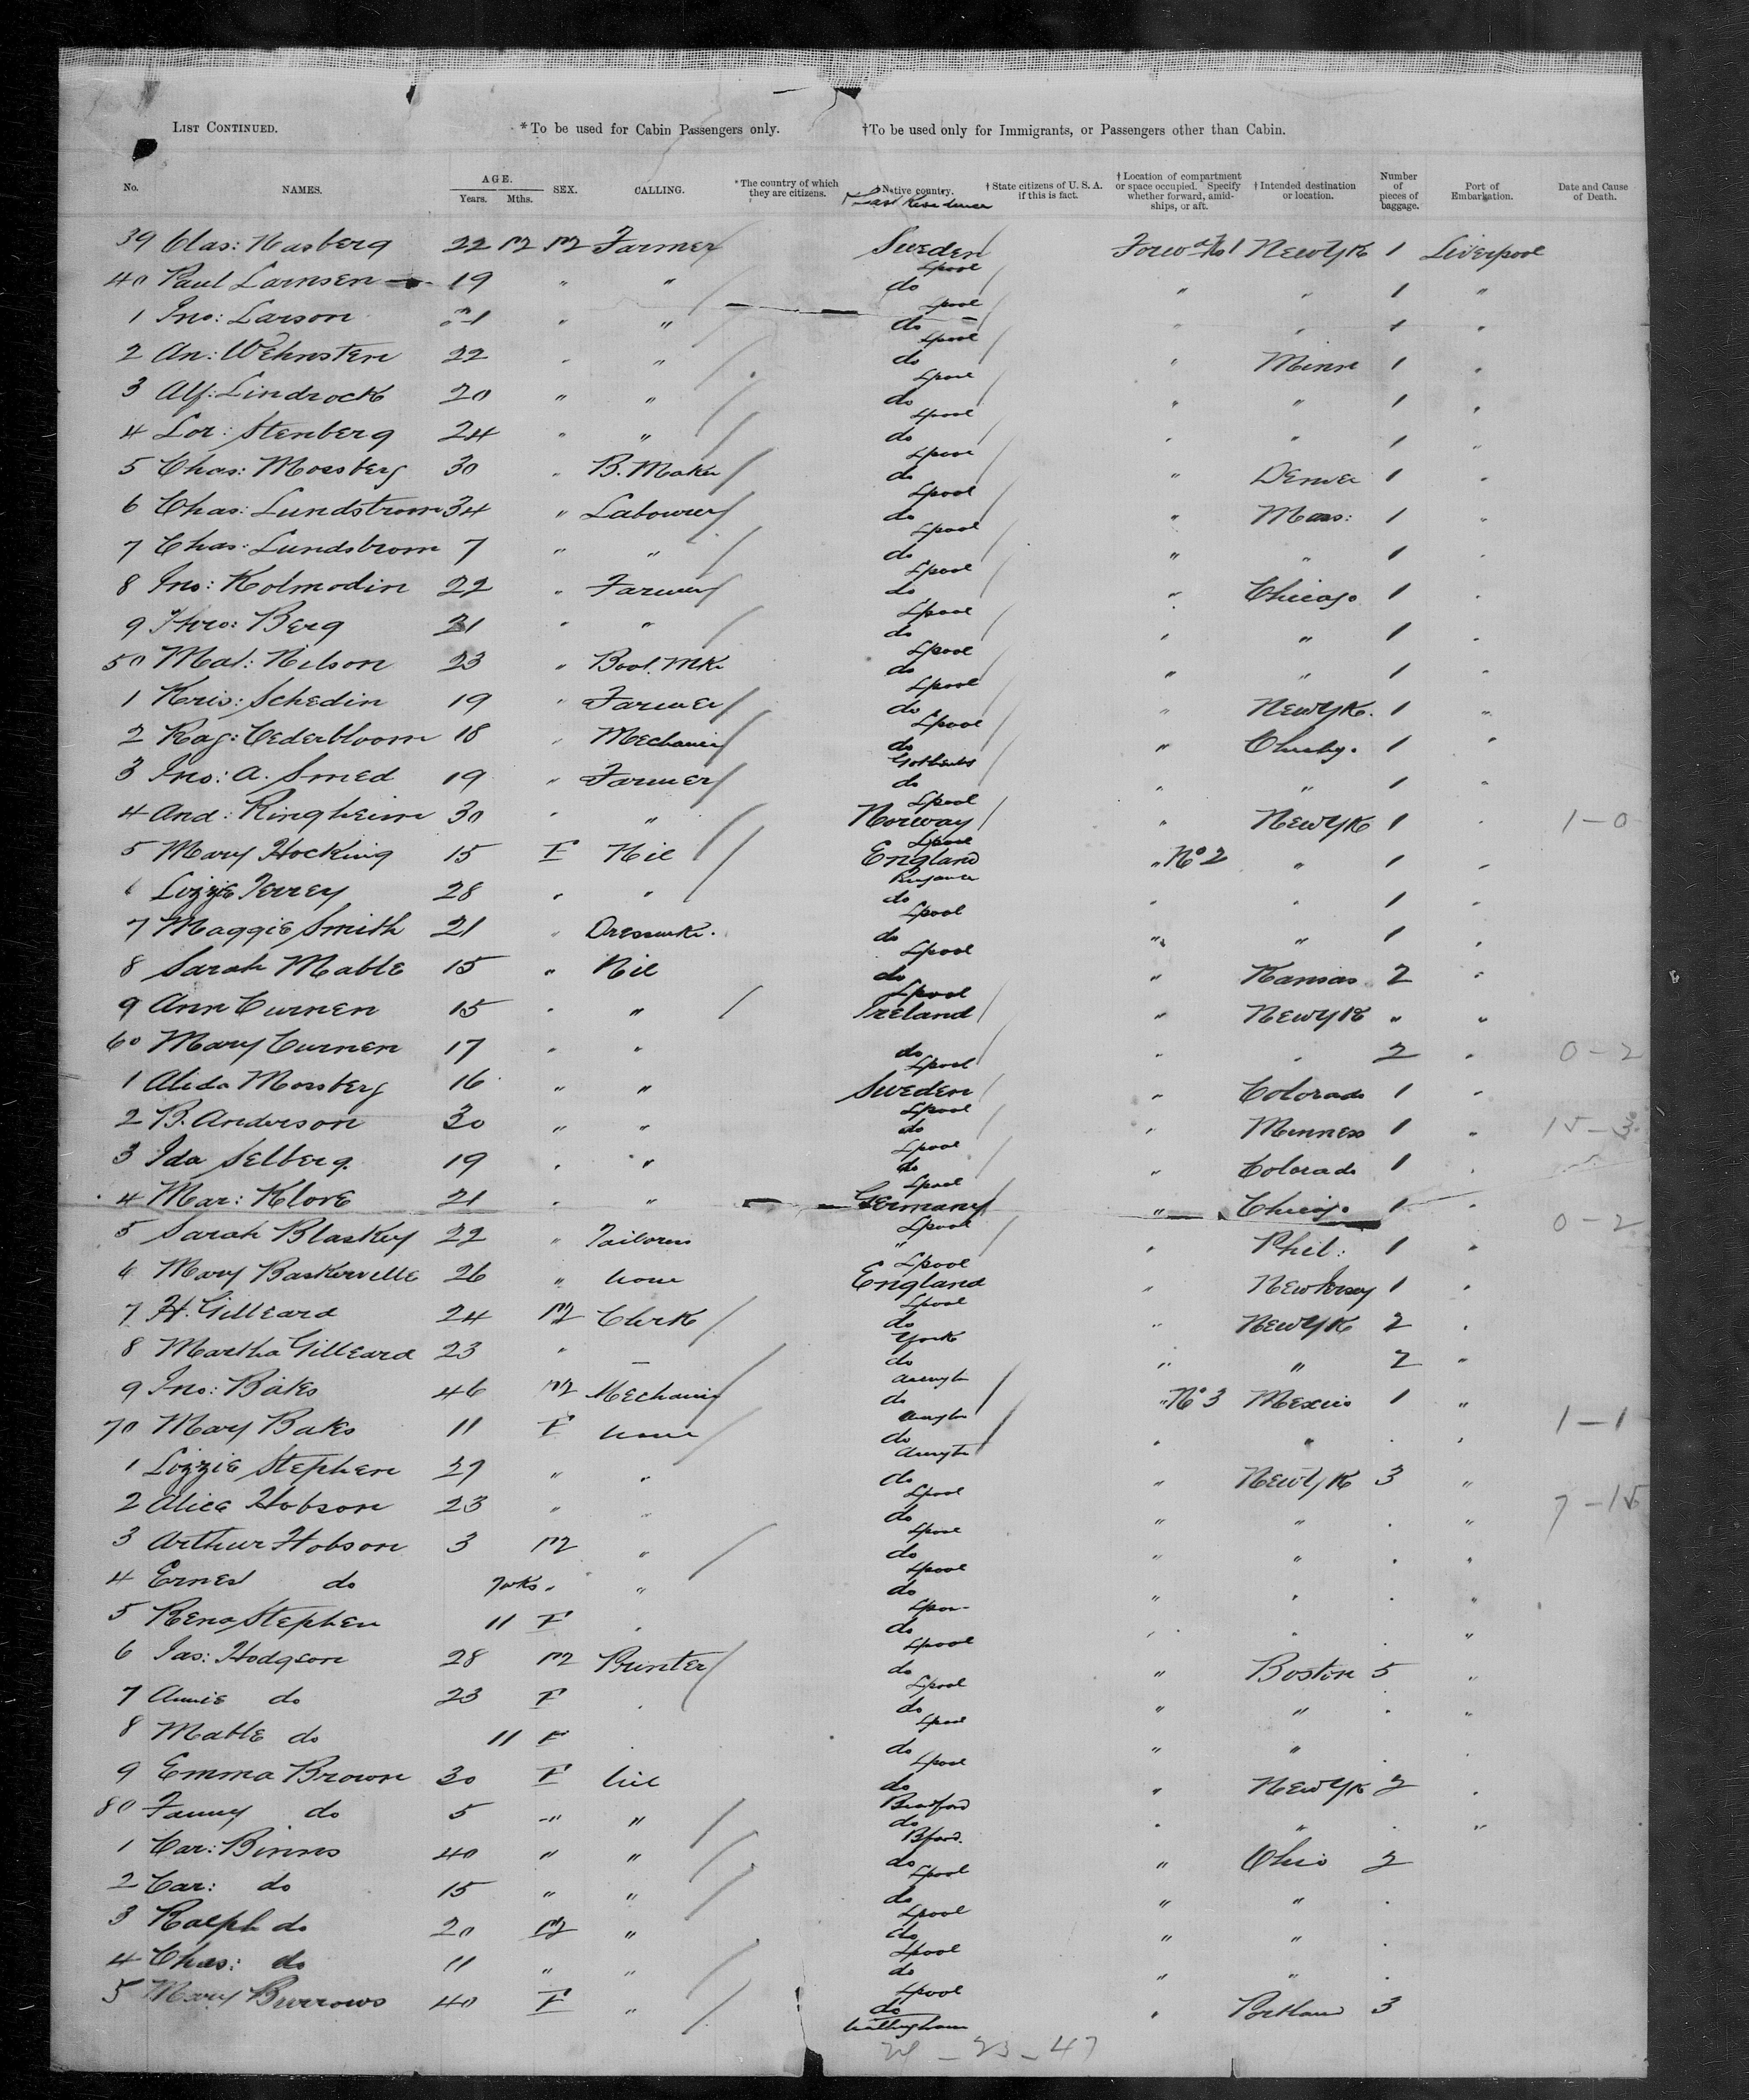 LIST CONTINUED. *To be used for Cabin Passengers only. †To be used only for Immigrants, or Passengers other than Cabin.
No. NAMES. AGE. Years. Mths. SEX. CALLING. *The country of which they are citizens. †Native country. Last Residence †State citizens of U. S. A. if this is fact. †Location of compartment or space occupied. Specify whether forward, amidships, or aft. †Intended destination or location. Number of pieces of baggage. Port of Embarkation. Date and Cause of Death.
39 Clas: Nasberg 22 M M Farmer Sweden Forwd No 1 New Yk 1 Liverpool
Lpool
40 Paul Larnsen 19 " " do " " 1 "
Lpool
1 Jno: Larson 21 " " do " " 1 "
Lpool
2 An: Wehnsten 22 " " do " Minn 1 "
Lpool
3 Alf: Lindrock 20 " " do " " 1 "
Lpool
4 Lor: Stenberg 24 " " do " " 1 "
Lpool
5 Chas: Mossberg 30 " B. Maker do " Denver 1 "
Lpool
6 Chas: Lundstrom 34 " Labourer do " Mass: 1 "
Lpool
7 Chas: Lundstrom 7 " " do " " 1 "
Lpool
8 Jno: Kolmodin 22 " Farmer do " Chicago 1 "
Lpool
9 Berg 21 " " do " " 1 "
Lpool
50 Mat: Nilson 23 " Boot Mkr do " " 1 "
Lpool
1 Kris: Schedin 19 " Farmer do " New Yk. 1 "
Lpool
2 Rag: Cederbloom 18 " Mechanic do " 1 "
3 Jno: A. Smed 19 " Farmer do " " 1 "
Lpool
4 And: Ringheim 30 " " Norway " New Yk 1 " 1-0
Lpool
5 Mary Hocking 15 F Nil England " No 2 " 1 "
6 Lizzie Terrey 28 " " do " " 1 "
Lpool
7 Maggie Smith 21 " Dressmkr. do " " 1 "
Lpool
8 Sarah Mable 15 " Nil do " Kansas 2 "
Lpool
9 Ann Curnen 15 " " Ireland " New Yk " "
60 Mary Curnen 17 " " do " " 2 " 0-2
Lpool
1 Alida Mossberg 16 " " Sweden " Colorado 1 "
Lpool
2 B. Anderson 30 " " do " Minness 1 " 15-3
Lpool
3 Ida Selberg 19 " " do " Colorado 1 "
Lpool
4 Mar: Klove 21 " " Germany " Chicago 1 "
Lpool
5 Sarah Blaskey 22 " Tailoress " " Phil: 1 " 0-2
Lpool
6 Mary Baskerville 26 " None England " New Jersey 1 "
Lpool
7 H. Gilleard 24 M Clerk do " New Yk 2 "
York
8 Martha Gilleard 23 " — do " " 2 "
9 Jno: Bakes 46 M Mechanic do " No 3 Mexico 1 "
70 Mary Bakes 11 F None do " " " " 1-1
1 Lizzie Stephen 27 " " do " New Yk 3 "
Lpool
2 Alice Hobson 23 " " do " " " " 7-15
Lpool
3 Arthur Hobson 3 M " do " " " "
Lpool
4 Ernest do " " do " " " "
5 Rena Stephen 11 F " do " " " "
Lpool
6 Jas: Hodgson 28 M Printer do " Boston 5 "
Lpool
7 Annie do 23 F " do " " " "
Lpool
8 Mable do 11 F " do " " " "
Lpool
9 Emma Brown 30 F Nil do " New Yk 2 "
Bradford
80 Fanny do 5 " " do " " " "
Bford.
1 Car: Binns 40 " " do " Ohio 2
Lpool
2 Car: do 15 " " do " " "
Lpool
3 Ralph do 20 M " do " " "
Lpool
4 Chas: do 11 " " do " " "
Lpool
5 Mary Burrows 40 F " do " Portland 3
Nottingham
24 - 23 - 47